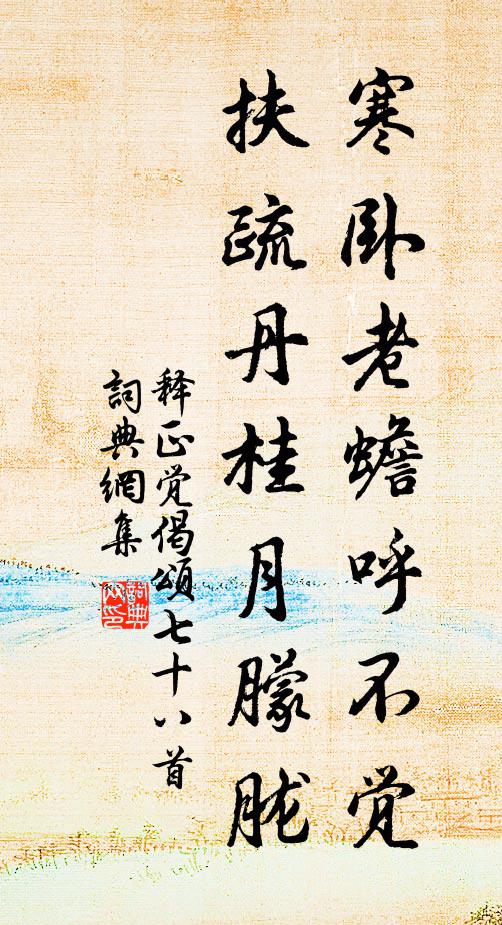 寒卧老蟾呼不觉
扶疏丹桂月朦胧
释正觉偈頌七十八首
詞典網集